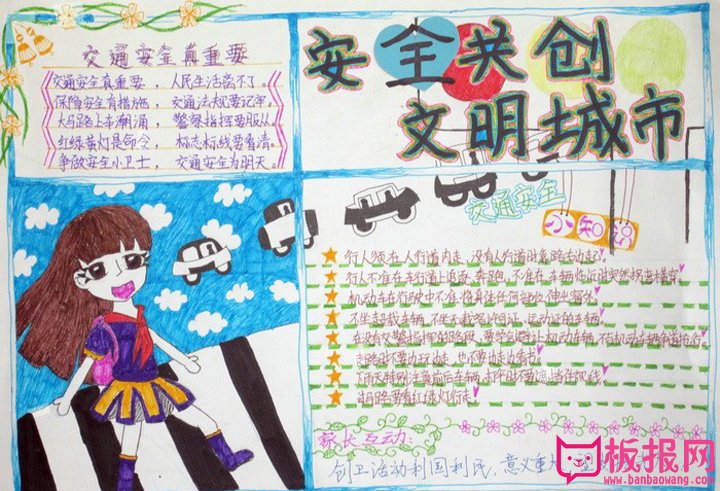 交通安全真重要
交通安全真重要，人民生活离不了。
保障安全有措施，交通法规要记牢。
大马路上车潮涌，警察指挥要服从。
红绿黄灯是命令，标志标线要看清。
争做安全小卫士，交通安全为明天。
安全共创
文明城市
交通安全
小知识
行人须在人行道内走，没有人行道时靠路右边走。
行人不准在车行道上追逐、奔跑，不准在车辆临近时突然拐弯横穿
机动车在行驶中不准将身体任何部位伸出窗外
不坐超载车辆，不坐无载客许可证、运动证的车辆。
在没有交警指挥的路段，要学会避让机动车辆，不与机动车辆争道抢行。
走路时不要边玩边走，也不要边走边看书
下雨天特别注意前后车辆，打伞时不要遮挡住视线。
出路要看红绿灯行走
家长互动：
创卫活动利国利民，意义重大
板报网
www.banbaowang.com